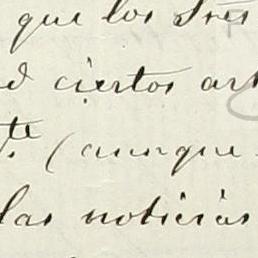 que los Sres
d ciertos art
te. (aunque
las noticias